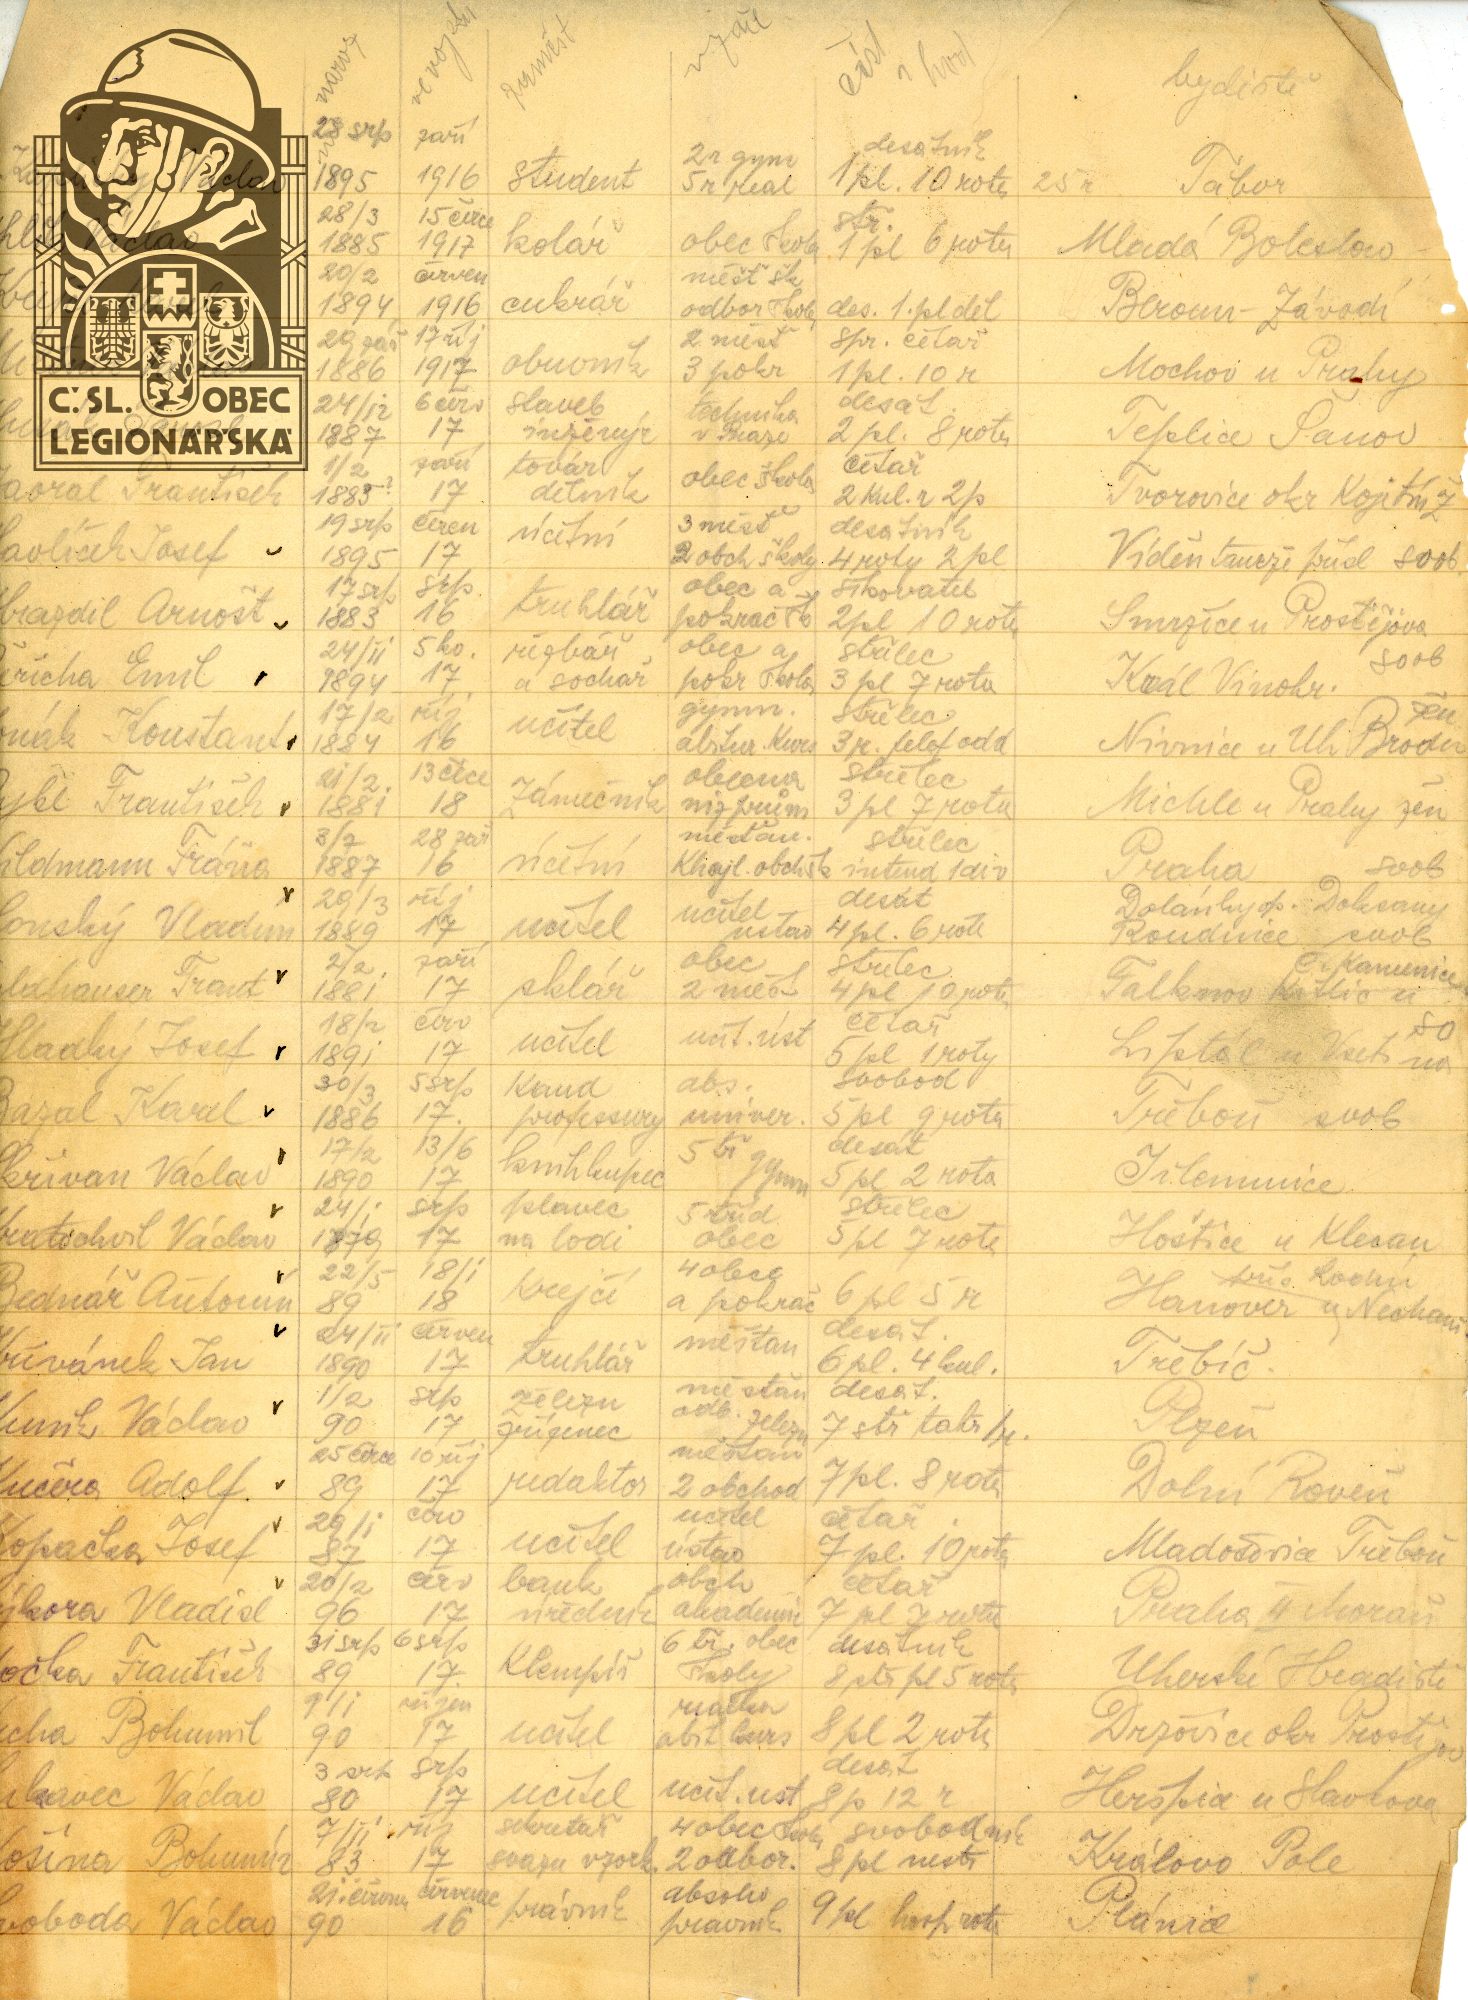 naroz ve vojsku zaměst vzděl část a hod bydliště
28 srp září 2 r gym desátník
Václav 1895 1916 student 5 r real 1 pl. 10 rota 25 r Tábor
28/3 15 čece stř.
Václav 1885 1917 kolář obec škola 1 pl 6 rota Mladá Boleslav
20/2 červen měšť šk
1894 1916 cukrář odbor školy des. 1. pl děl Beroun-Závodí
29 září 17 říj 2 měšť spr. četař
1886 1917 obuvník 3 pokr 1 pl. 10 r Mochov u Prahy
ČSL. OBEC
LEGIONÁŘSKÁ
24/12 6 červ staveb technika desát.
1887 17 inženýr v Praze 2 pl. 8 rota Teplice Šanov
1/2 září továr četař
František 1885? 17 dělník obec škola 2 kul. r 2 p Tvorovice okr Kojetín ž
19 srp červen 3 měšť desátník
avlíček Josef 1895 17 účetní 2 obch školy 4 roty 2 pl Vídeň svob.
17 srp srp. obec a šikovatel
Arnošt 1883 16 truhlář pokrač šk 2 pl 10 rota Smržice u Prostějova
24/II 5 ho. řezbář obec a střelec svob
Emil 1894 17 a sochař pokr škola 3 pl 7 rota Král Vinohr.
17/2 říj gymn. střelec žen
Konstant 1884 16 učitel abitur. kurs 3 p. telef odd Nivnice u Uh Brodu
21/2. 13 čece obecná střelec
František 1881 18 zámečník niž prům 3 pl 7 rota Michle u Prahy žen
3/7 28 září měšťan. střelec
ildmann Fráňa 1887 16 účetní obch šk intend 1 div Praha svob
29/3 říj učitel desát Dolánky p. Doksany
onský Vladim 1889 17 učitel ústav 4 pl. 6 rota Roudnice svob
2/2. září obec střelec Č. Kamenice
František 1881 17 sklář 2 měš 4 pl 10 rota Falknov Kytlic u
18/2 červ četař
Hladký Josef 1891 17 učitel učit. úst 5 pl 1 roty Liptál u Vsetína
30/3 5 srp kand abs. svobod
Karel 1886 17. professury univer. 5 pl 9 rota Třeboň svob
17/2 13/6 5 tř desát
křivan Václav 1890 17 knihkupec gymn 5 pl 2 rota Jilemnice
24/1 srp plavec 5 tříd střelec
Václav 1879 17 na lodi obec 5 pl 7 rota Hoštice u Klecan
22/5 18/1 4 obec
Bednář Antonín 89 18 krejčí a pokrač 6 pl 5 r Hanover u Nechanic
24/II červen měšťan desát.
řivánek Jan 1890 17 truhlář 6 pl. 4 kul. Třebíč.
1/2 srp železn měšťan desát.
Václav 90 17 zřízenec odb. železn 7 stř tatr p. Plzeň
25 čece 10 říj měšťan
učera Adolf 89 17 redaktor 2 obchod 7 pl. 8 rota Dolní Roveň
29/1 červ učitel četař.
Kopačka Josef 87 17 učitel ústav 7 pl. 10 rota Mladošovice Třeboň
20/2 červ bank obch četař
ýkora Vladisl 96 17 úředník akademie 7 pl 7 rota Praha II Moráň
31 srp 6 srp 6 tř. obec desátník
očka František 89 17. klempíř školy 8 stř pl 5 rota Uherské Hradiště
9/1 říjen
cha Bohumil 90 17 učitel abit kurs 8 pl 2 rota Držovice okr Prostějov
3 srp srp desát
Václav 80 17 učitel učit. úst 8 p 12 r Heršpice u Slavkova
7/III říj sekretář 4 obec školy svobodník
ošina Bohumír 83 17 svazu 2 odbor. 8 pl Královo Pole
21. června červenec absolv
voboda Václav 90 16 právník pravník 9 pl hosp rota Plánice